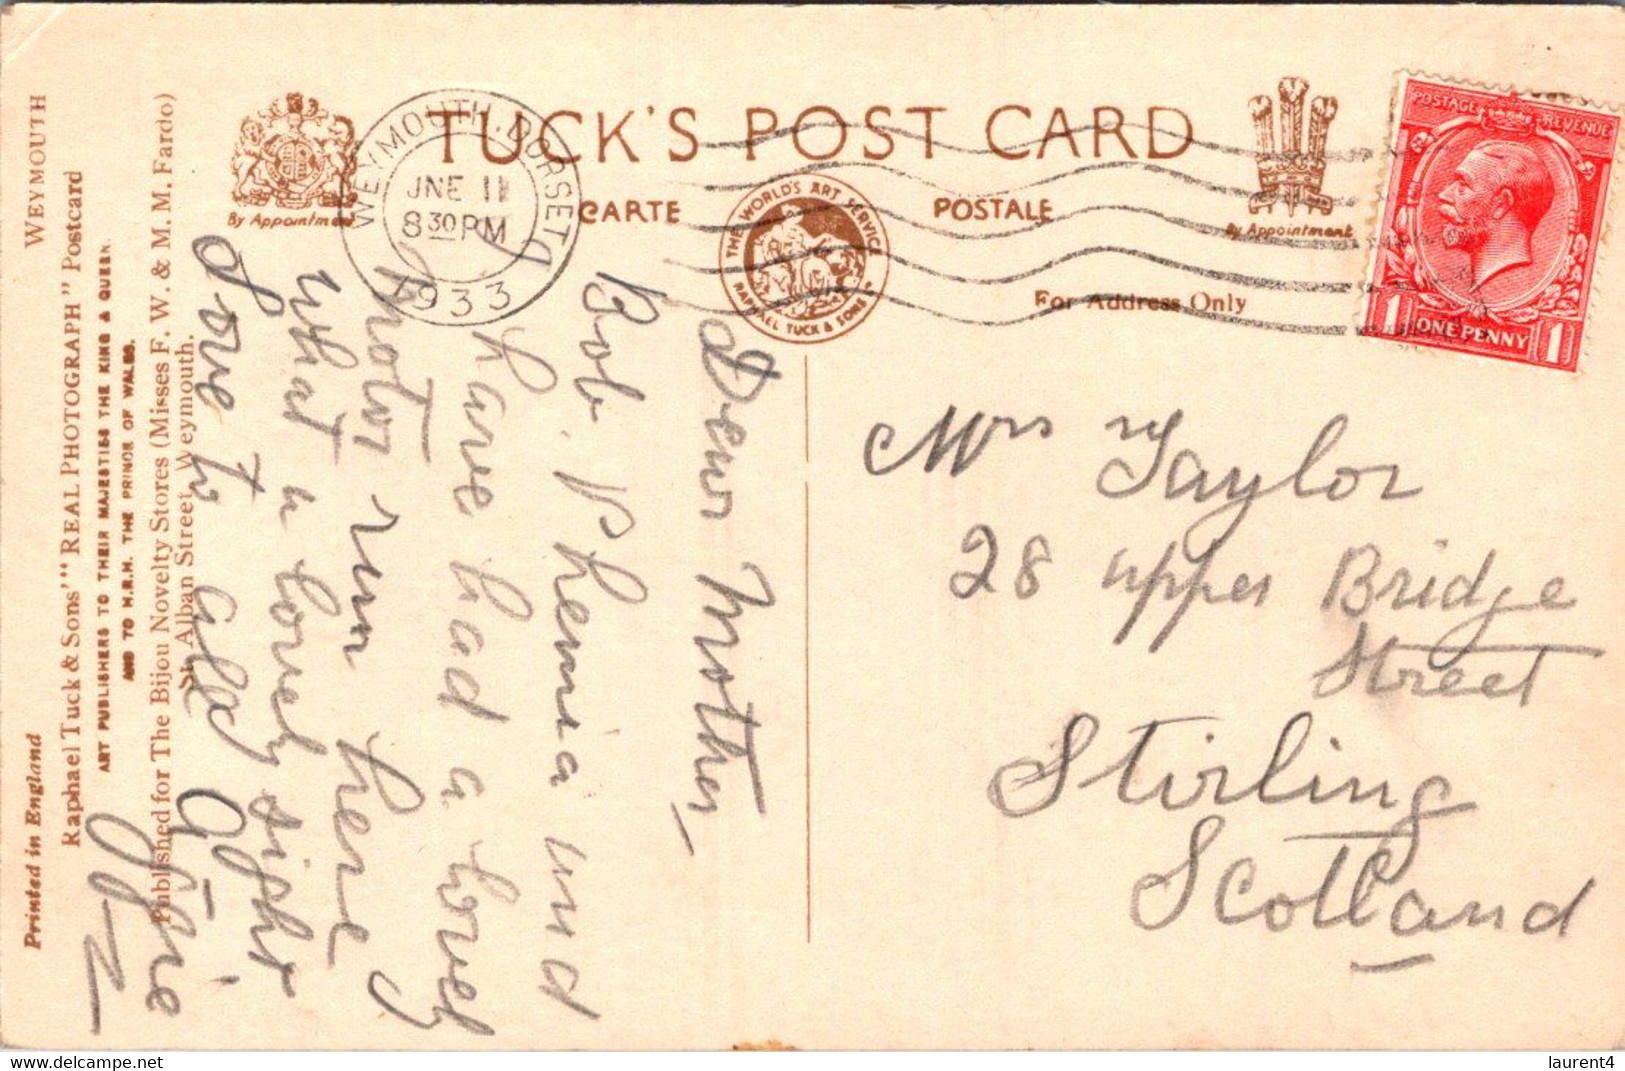 TUCK'S POST CARD
CARTE POSTALE
By Appointment
By Appointment
For Address Only
THE WORLD'S ART SERVICE
RAPHAEL TUCK & SONS LD
WEYMOUTH. DORSET
JNE 11
8 30 PM
1933
POSTAGE REVENUE
1 ONE PENNY 1
Mrs Taylor
28 upper Bridge
Street
Stirling
Scotland
Dear Mother
Bob. and
have had a lovely
motor run here
What a lovely sight
Love to all
Effie
WEYMOUTH
Raphael Tuck & Sons' "REAL PHOTOGRAPH" Postcard
ART PUBLISHERS TO THEIR MAJESTIES THE KING & QUEEN.
AND TO H.R.H. THE PRINCE OF WALES.
Published for The Bijou Novelty Stores (Misses F. W. & M. M. Fardo)
St. Alban Street, Weymouth.
Printed in England
laurent4